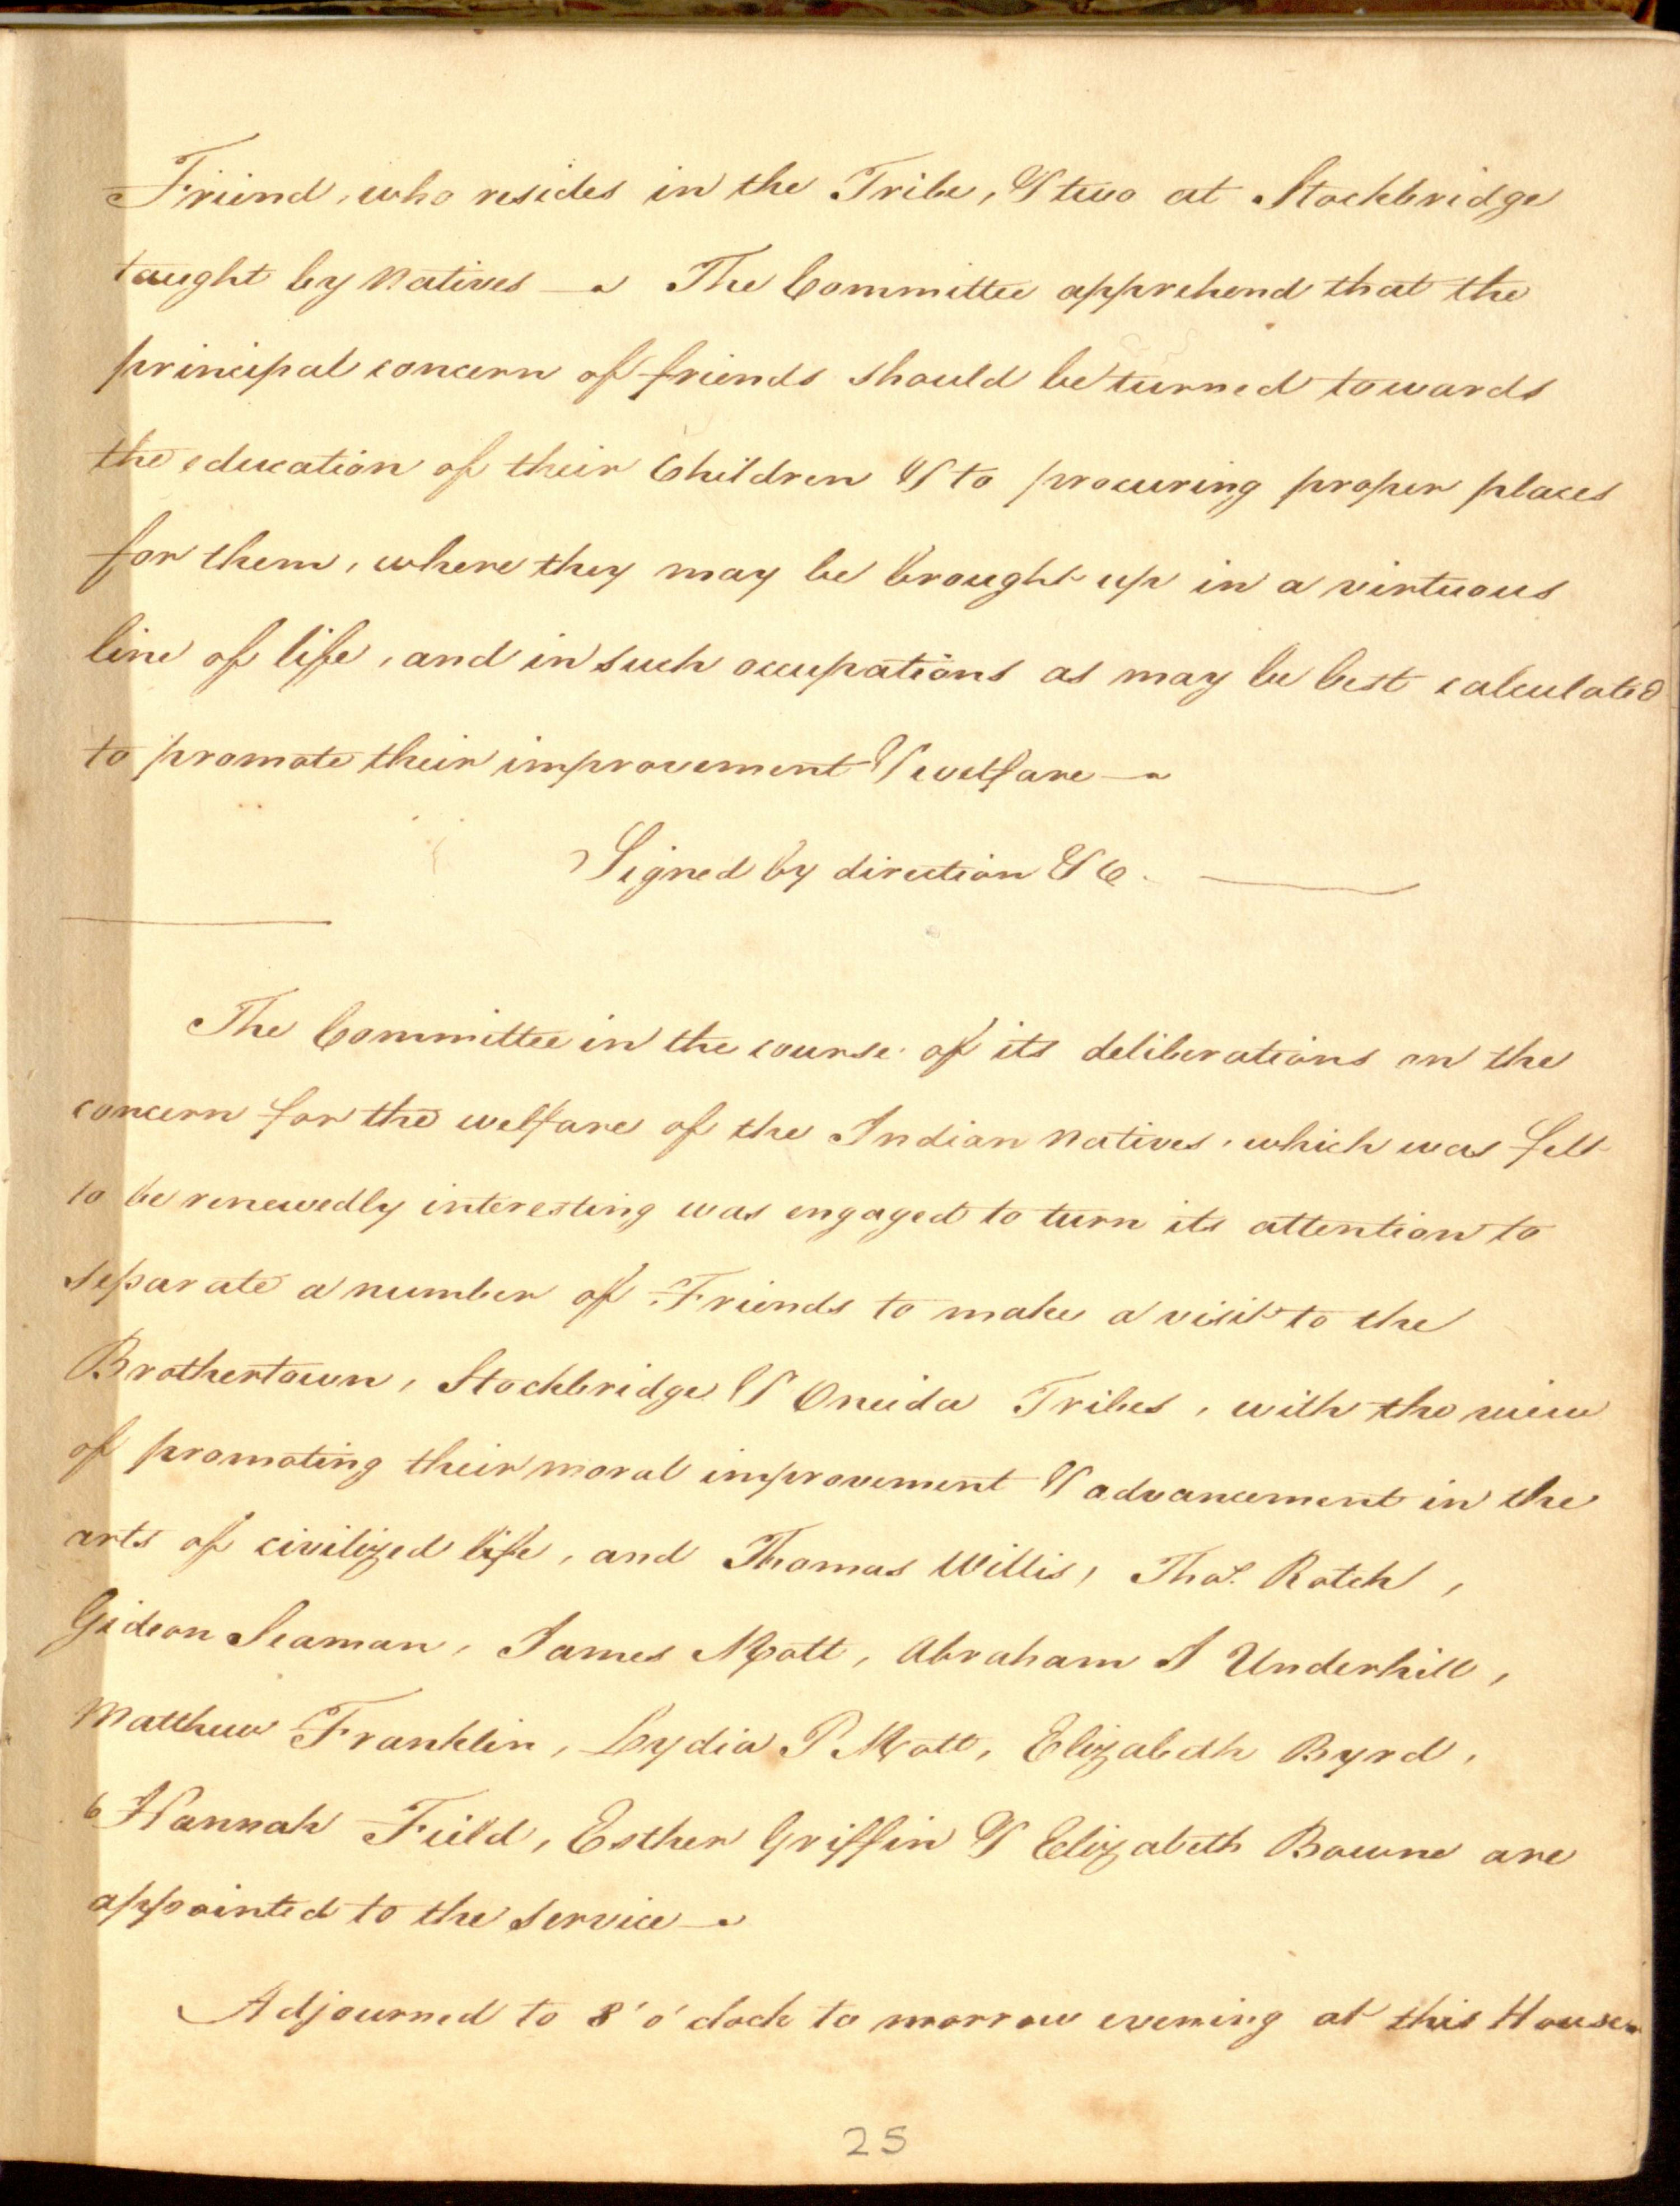 Friend, who resides in the Tribe, & two at Stockbridge
taught by Natives — The Committee apprehend that the
principal concern of friends should be turned towards
the education of their Children & to procuring proper places
for them, where they may be brought up in a virtuous
line of life, and in such occupations as may be best calculated
to promote their improvement & welfare —
Signed by direction &c. —
The Committee in the course of its deliberations on the
concern for the welfare of the Indian Natives, which was felt
to be renewedly interesting was engaged to turn its attention to
separate a number of Friends to make a visit to the
Brothertown, Stockbridge & Oneida Tribes, with the view
of promoting their moral improvement & advancement in the
arts of civilized life, and Thomas Willis, Thos. Rotch,
Gideon Seaman, James Mott, Abraham I Underhill,
Matthew Franklin, Lydia P Mott, Elizabeth Byrd,
Hannah Field, Esther Griffin & Elizabeth Bowne are
appointed to the service —
Adjourned to 8 o'clock to morrow evening at this House.
25